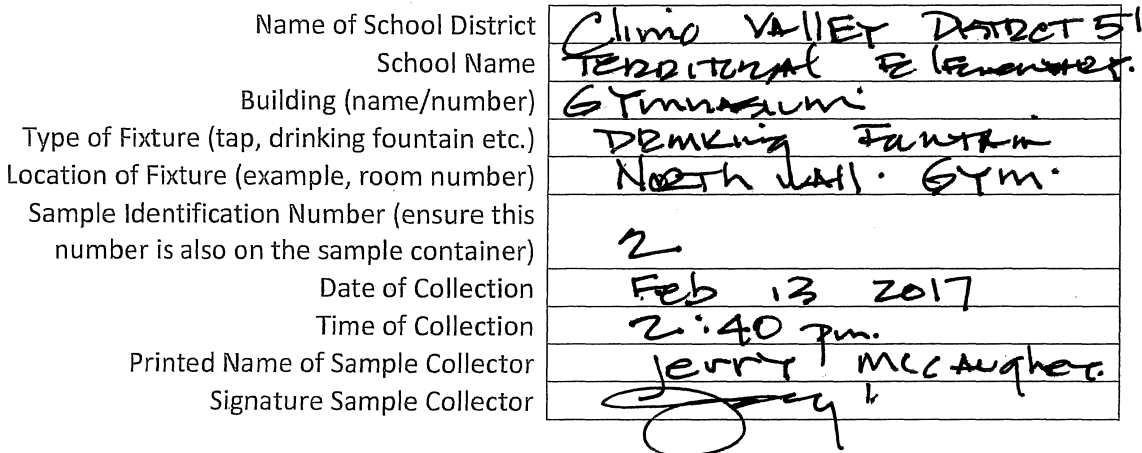 Name of School District Clino VAllEY District 51
School Name TERRITORIAl Elementary.
Building (name/number) GYmnasium
Type of Fixture (tap, drinking fountain etc.) Drinking Fountain
Location of Fixture (example, room number) North Wall. GYm.
Sample Identification Number (ensure this
number is also on the sample container) 2
Date of Collection Feb 13 2017
Time of Collection 2:40 pm.
Printed Name of Sample Collector Jerry McCaughey.
Signature Sample Collector